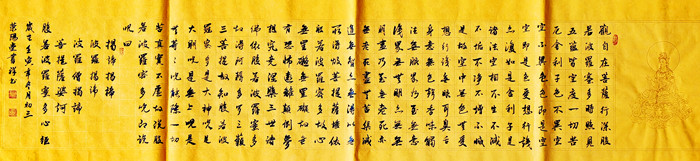 觀自在菩薩行深般
若波羅蜜多時照見
五蘊皆空度一切苦
厄舍利子色不異空
空不異色色即是空
空即是色受想行識
亦復如是舍利子是
諸法空相不生不滅
不垢不淨不增不減
是故空中無色無受
想行識無眼耳鼻舌
身意無色聲香味觸
法無眼界乃至無意
識界無無明亦無無
明盡乃至無老死亦
無老死盡無苦集滅
道無智亦無得以無
所得故菩提薩埵依
般若波羅蜜多故心
無罣礙無罣礙故無
有恐怖遠離顛倒夢
想究竟涅槃三世諸
佛依般若波羅蜜多
故得阿耨多羅三藐
三菩提故知般若波
羅蜜多是大神咒是
大明咒是無上咒是
無等等咒能除一切
苦真實不虛故說般
若波羅蜜多咒即說
咒曰
揭諦揭諦
波羅揭諦
波羅僧揭諦
菩提薩婆訶
般若波羅蜜多心經
壬寅年月初三